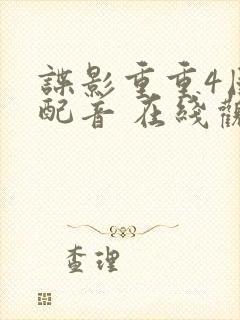 諜影重重4
配音 在綫觀
查理